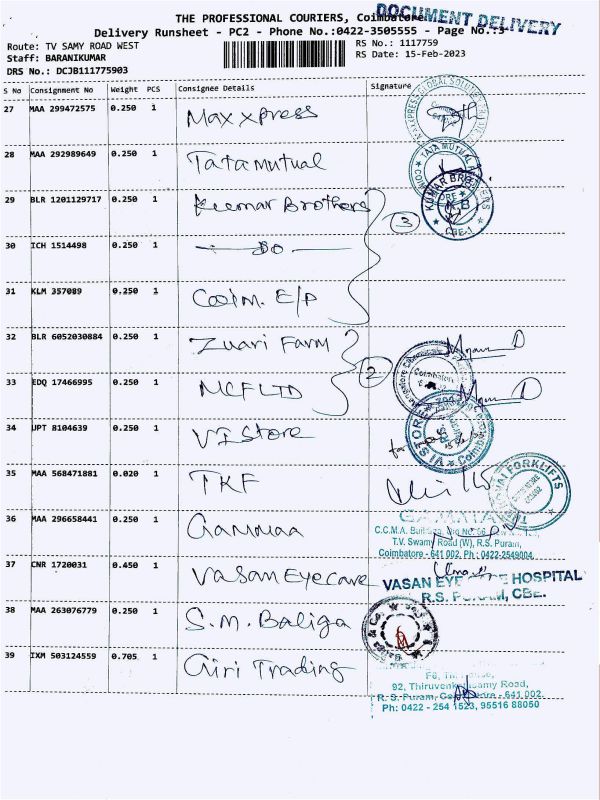 THE PROFESSIONAL COURIERS, Coimbatore
DOCUMENT DELIVERY
Delivery Runsheet - PC2 - Phone No.:0422-3505555 - Page No.:3
Route: TV SAMY ROAD WEST
RS No.: 1117759
Staff: BARANIKUMAR
RS Date: 15-Feb-2023
DRS No.: DCJB111775903
S No Consignment No Weight PCS Consignee Details Signature
27 MAA 299472575 0.250 1 Maxxpress
28 MAA 292989649 0.250 1 Tata Mutual
29 BLR 1201129717 0.250 1 Kumar Brothers
3
KUMAR BROS
CBE-1
30 ICH 1514498 0.250 1 Do
31 KLM 357089 0.250 1 Coim. E/P
32 BLR 6052030884 0.250 1 Zuari Farm
2
Coimbatore
33 EDQ 17466995 0.250 1 MCF LTD
34 JPT 8104639 0.250 1 VI Store
VI STORE
35 MAA 568471881 0.020 1 TKF
FORKLIFTS
36 MAA 296658441 0.250 1 Gammaa
T.V. Swamy Road (W), R.S. Puram,
Coimbatore - 641 002. Ph : 0422-2549004.
37 CNR 1720031 0.450 1 Vasan Eyecare
VASAN EYE HOSPITAL
R.S. PURAM, CBE.
38 MAA 263076779 0.250 1 S.M. Baliga
39 IXM 503124559 0.705 1 Giri Trading
92, Thiruvenkatasamy Road,
R. S. Puram, Coimbatore - 641 002.
Ph: 0422 - 254 1523, 95516 88050